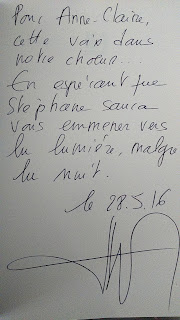 Pour Anne-Claire,
cette voix dans
notre chœur...
En espérant que
Stéphane saura
vous emmener vers
la lumière, malgré
la nuit.
le 28.5.16